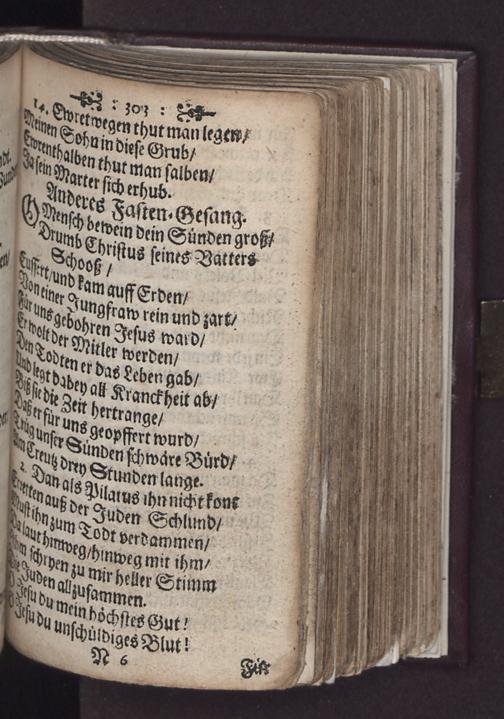 : 303 :
14. Ewretwegen thut man legen/
Meinen Sohn in diese Grub/
Ewrenthalben thut man salben/
Ja sein Marter sich erhub.
Anderes Fasten-Gesang.
O Mensch bewein dein Sünden groß/
Drumb Christus seines Vatters
Schooß /
Eussert/und kam auff Erden/
Von einer Jungfraw rein und zart/
Für uns gebohren Jesus ward/
Er wolt der Mitler werden/
Den Todten er das Leben gab/
Und legt dabey all Kranckheit ab/
Biß sie die Zeit hertrange/
Daß er für uns geopffert wurd/
Trüg unser Sünden schwäre Bürd/
Am Creutz drey Stunden lange.
2. Dan als Pilatus ihn nicht kont
Erretten auß der Juden Schlund/
Must ihn zum Todt verdammen/
Da laut hinweg/hinweg mit ihm/
schryen zu mir heller Stimm
Die Juden allzusammen.
O Jesu du mein höchstes Gut!
O Jesu du unschüldiges Blut!
N 6